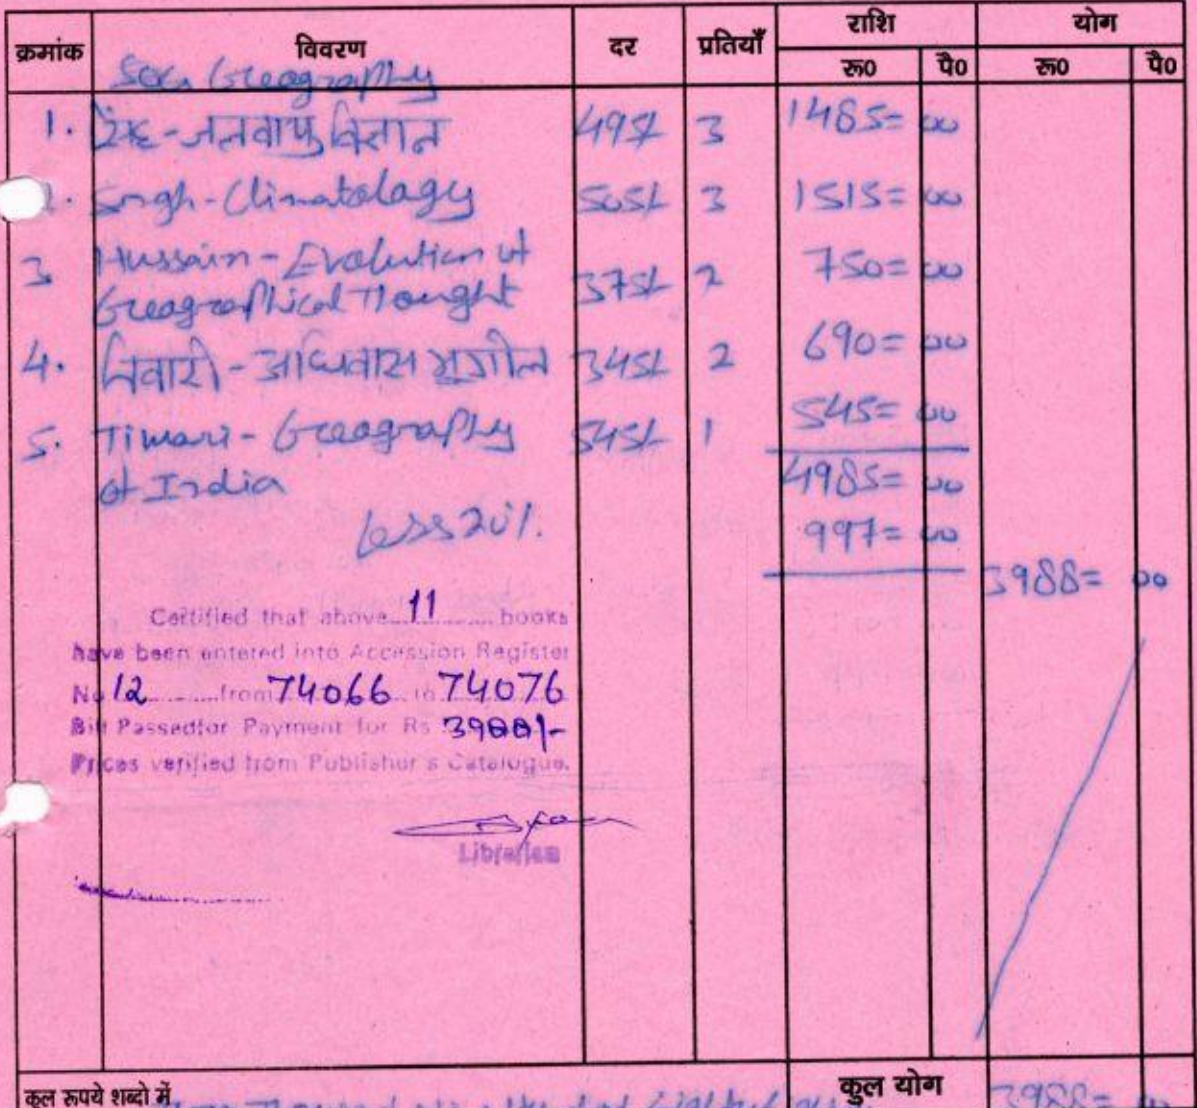 क्रमांक विवरण दर प्रतियाँ राशि योग
रू0 पै0 रू0 पै0
Geography
1. सिंह-जलवायु विज्ञान 495/- 3 1485= 00
2. Singh-Climatology 505/- 3 1515= 00
3 Hussain-Evolution of
Geographical Thought 375/- 2 750= 00
4. तिवारी-अधिवास भूगोल 345/- 2 690= 00
5. Tiwari-Geography 545/- 1 545= 00
of India 4985= 00
Less 20%. 997= 00
3988= 00
Certified that above 11 books
have been entered into Accession Register
No 12 from 74066 to 74076
Bill Passed for Payment for Rs 3988/-
Prices verified from Publisher's Catalogue.
Librarian
कुल रूपये शब्दो में कुल योग 3988= 00